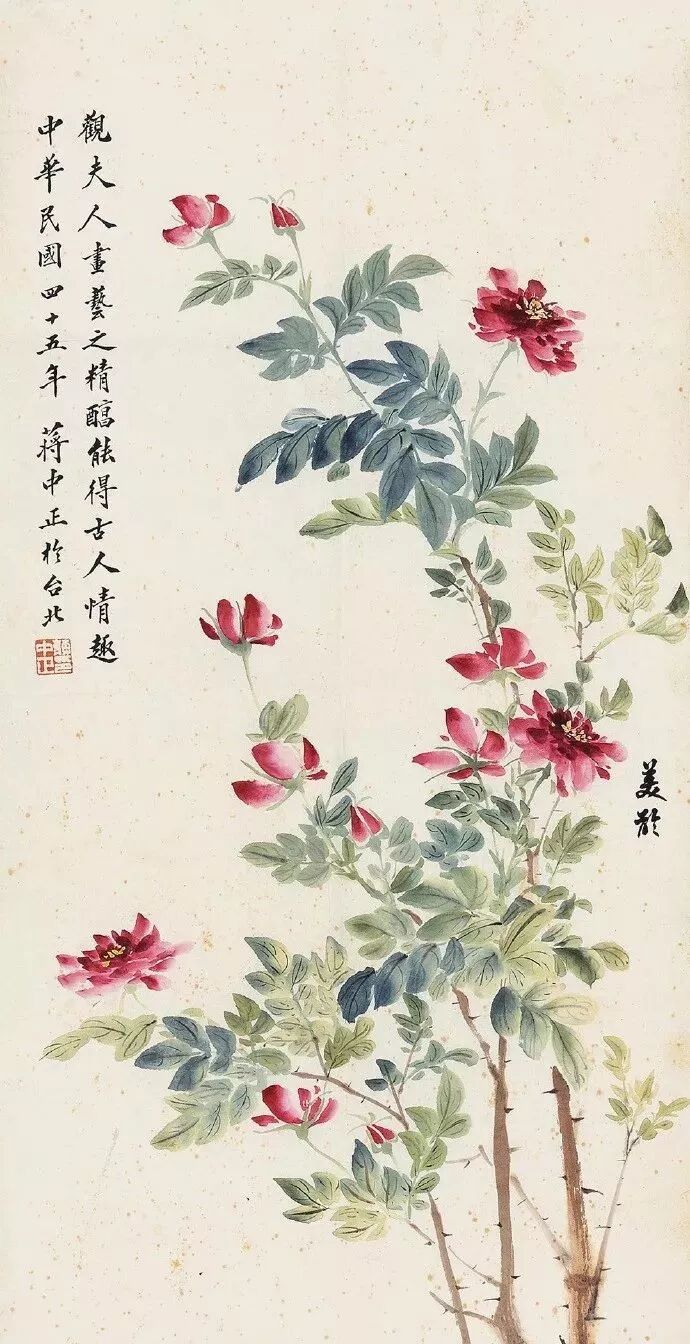 觀夫人畫藝之精醇能得古人情趣
中華民國四十五年 蔣中正於台北
美齡